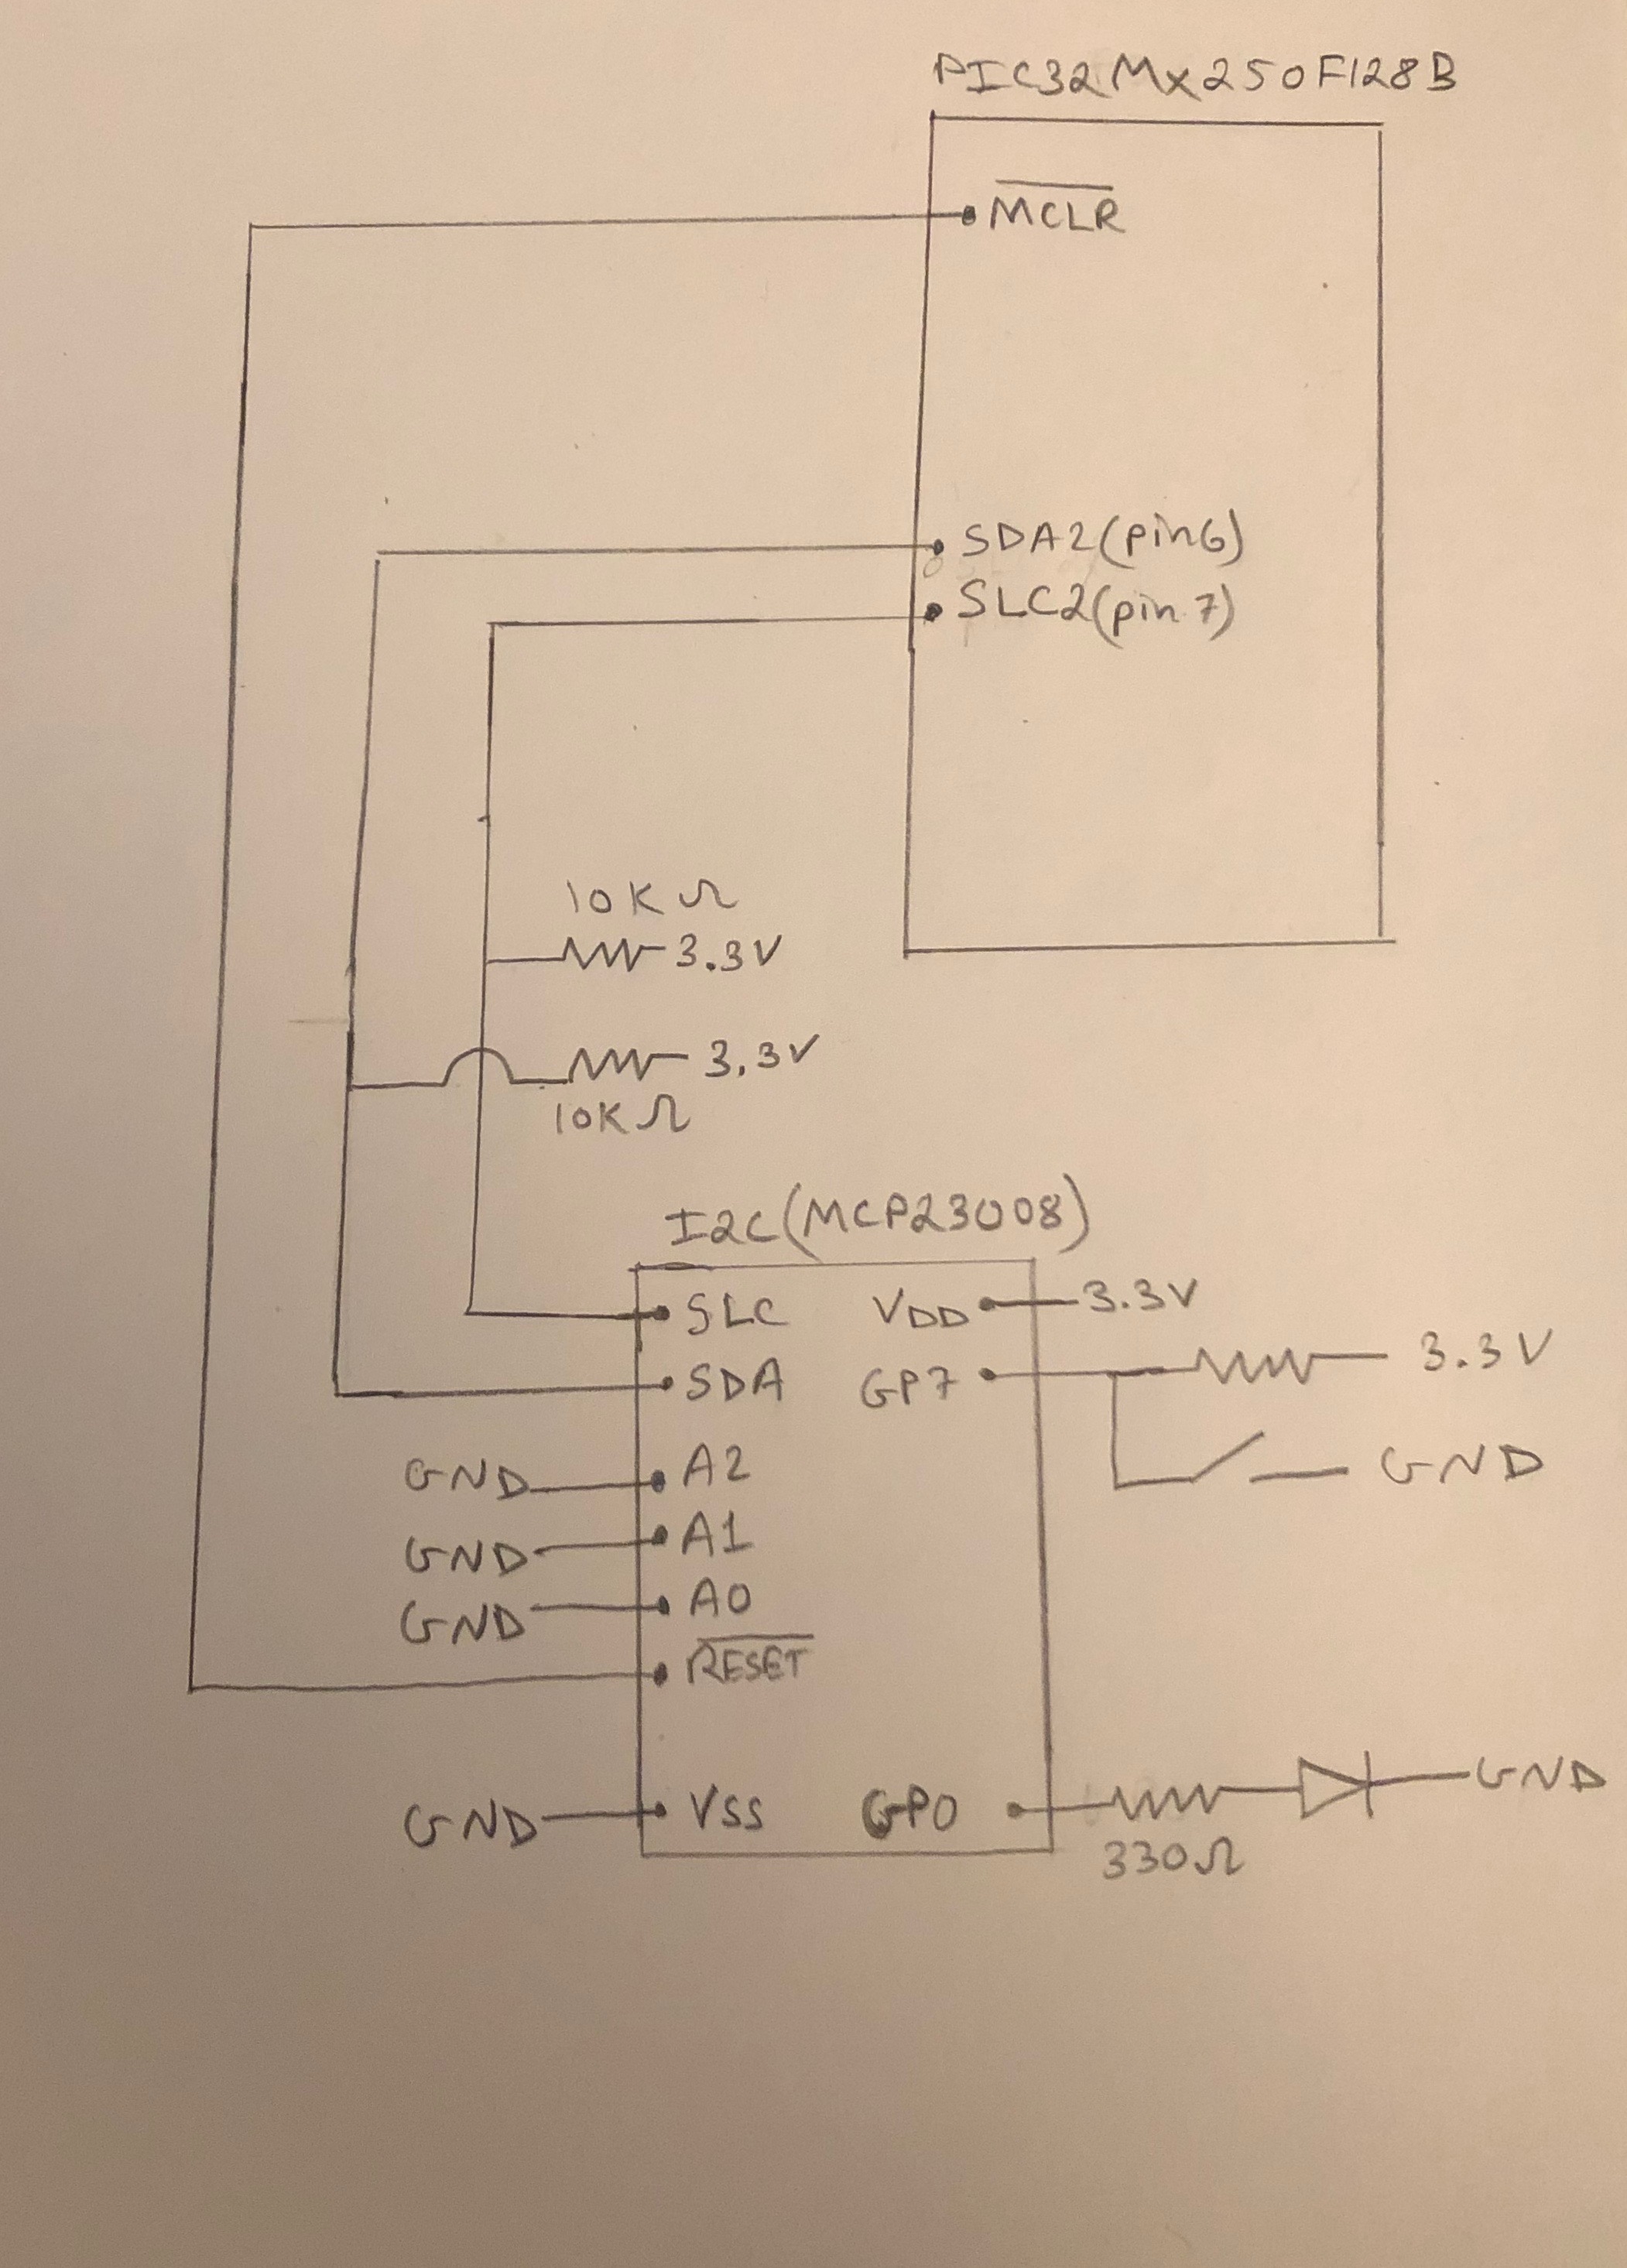 PIC32MX250F128B
MCLR
SDA2(pin6)
SLC2(pin7)
10KΩ
3.3V
3.3V
10KΩ
I2C(MCP23008)
SLC VDD 3.3V
SDA GP7 3.3V
GND A2 GND
GND A1
GND A0
RESET
GND VSS GP0 GND
330Ω